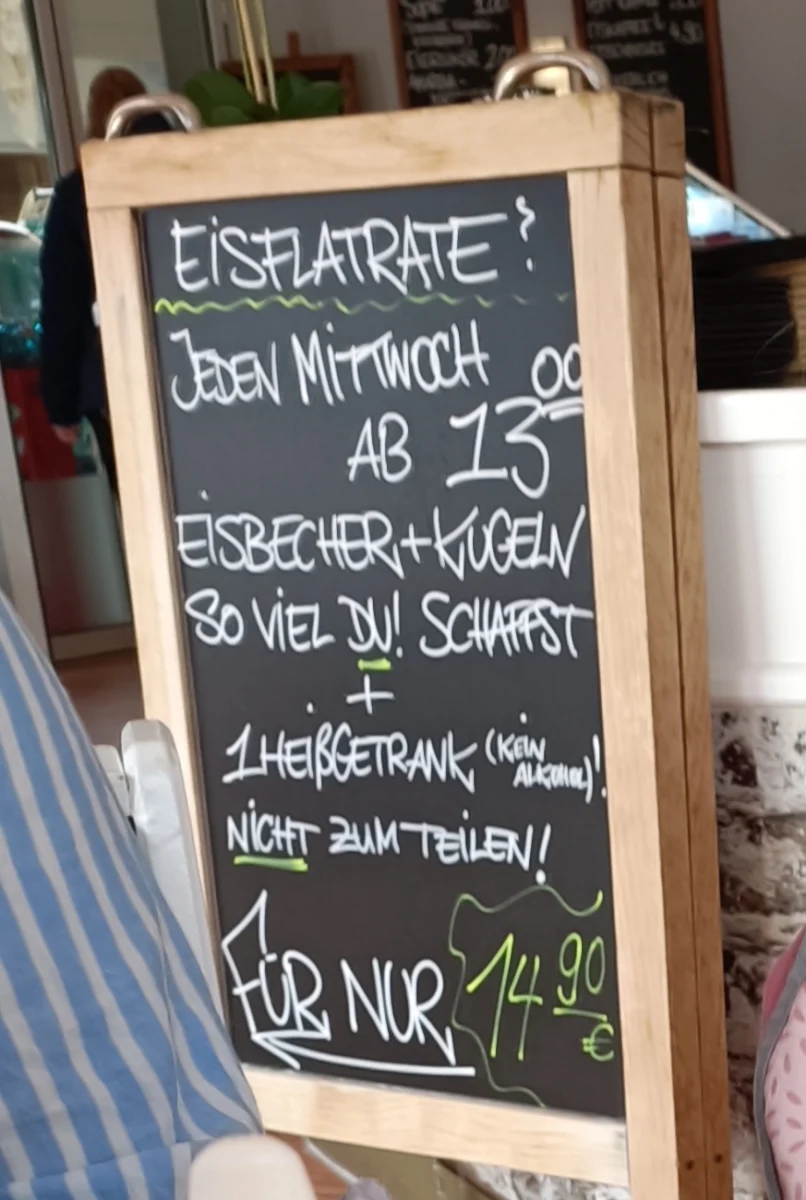 EiSFLATRATE?
JEDEN MiTTWOCH
AB 13 00
EiSBECHER+KUGELN
SO ViEL DU! SCHAFFST
+
1 HEißGETRANK (KEiN ALKOHOL)!
NiCHT ZUM TEiLEN!
FÜR NUR 14 90 €